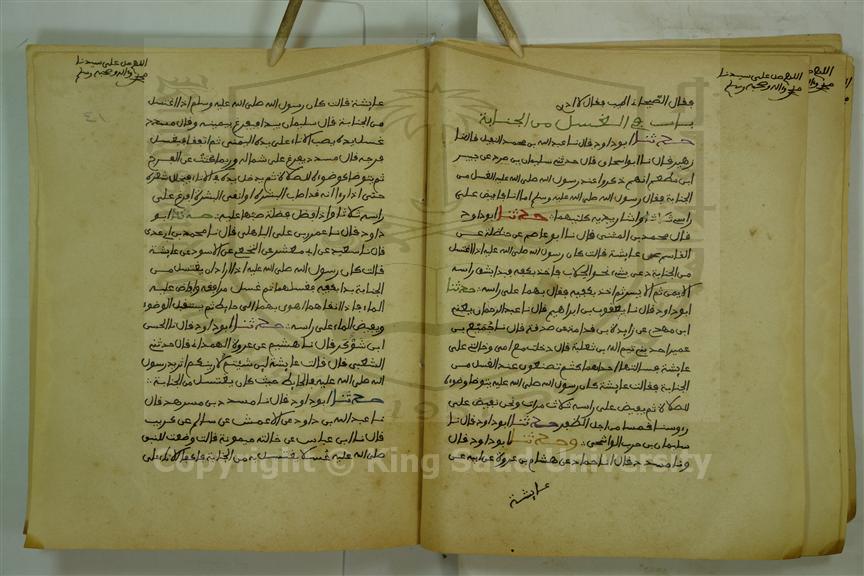 اللهم صل على سيدنا
محمد وآله وصحبه وسلم
فقال الصحابة
باب في الغسل من الجنابة
حدثنا ابو داود قال نا عبد الله بن محمد النفيل قال نا
زهير قال نا ابو اسحاق قال حدثنى سليمان بن صرد عن جبير
ابن مطعم انهم ذكروا عند رسول الله صلى الله عليه الغسل من
الجنابة فقال رسول الله صلى الله عليه وسلم اما انا فافيض على
راسي ثلاثا واشار بيديه كلتيهما حدثنا ابو داود
قال محمد بن المثنى قال نا ابو عاصم عن حنظلة عن
القاسم عن عايشة قالت كان رسول الله صلى الله عليه اذا اغتسل
من الجنابة دعى بشيء نحو الحلاب فاخذ بكفيه فبدا بشق راسه
الايمن ثم الايسر ثم اخذ بكفيه فقال بهما على راسه حدثنا
ابو داود قال نا يعقوب بن ابراهيم قال نا عبد الرحمان يعنى
ابن مهدي عن زايدة بن قدامة عن صدقة قال نا جميع بن
عمير احد بني تيم الله بن ثعلبة قال دخلت مع امي وخالتي على
عايشة فسالتها احداهما كيف كنتم تصنعون عند الغسل من
الجنابة فقالت عايشة كان رسول الله صلى الله عليه يتوضا وضوءه
للصلاة ثم يفيض على راسه ثلاث مرات ونحن نفيض على
روسنا خمسا من اجل الظفر حدثنا ابو داود قال نا
سليمان بن حرب الواشحي وحدثنا ابو داود قال
ونا مسدد قال نا حماد عن هشام بن عروة عن ابيه عن
عايشة
اللهم صل على سيدنا
محمد وآله وصحبه وسلم
عايشة قالت كان رسول الله صلى الله عليه وسلم اذا اغتسل
من الجنابة قال سليمان يبدا فيفرغ بيمينه وقال مسدد
غسل يديه يصب الاناء على يده اليمنى ثم اتفقا فيغسل
فرجه قال مسدد يفرغ على شماله وربما كنت عن الفرج
ثم يتوضا كوضوءه للصلاة ثم يدخل يده في الاناء فيخلل شعره
حتى اذا راى انه قد اصاب البشرة او انقى البشرة افرغ على
راسه ثلاثا واذا فضل فضلة صبها عليه حدثنا ابو
داود قال نا عمرو بن على الباهلي قال نا محمد بن ابي عدي
قال نا سعيد عن ابي معشر عن النخعي عن الاسود عن عايشة
قالت كان رسول الله صلى الله عليه اذا اراد ان يغتسل من
الجنابة بدا بكفيه فغسلهما ثم غسل مرافغه وافاض عليه
الماء فاذا انقاهما اهوى بهما الى حايط ثم يستقبل الوضوء
ويفيض الماء على راسه حدثنا ابو داود قال نا الحسن
ابن شوكر قال نا هشيم عن عروة الهمداني قال حدثنى
الشعبي قال قالت عايشة لين شيتم لارينكم اثر يد رسول
الله صلى الله عليه في الحايط حيث كان يغتسل من الجنابة
حدثنا ابو داود قال نا مسدد بن مسرهد قال
نا عبد الله بن داود عن الاعمش عن سالم عن كريب
قال نا ابن عباس عن خالته ميمونة قالت وضعت للنبي
صلى الله عليه غسلا يغتسل به من الجنابة فاكفا الاناء على
Copyright © King Saud University